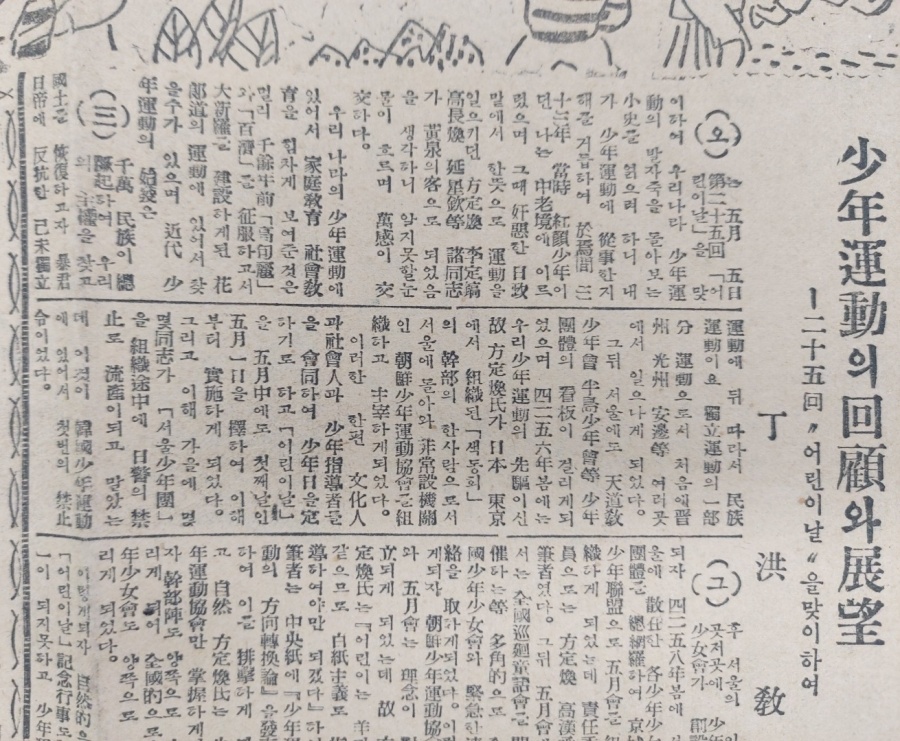 少年運動의 回顧와 展望
ー二十五回〃어린이날〃을맞이하여
丁 洪 敎
(오)는 五月 五日
第二十五回 「어
린이날」을 맞
이하여 우리나라 少年運
動의 발자죽을 돌아보는
小史를 읽으려 하니 내
가 少年運動에 從事한지
해를 거듭하여 於焉間 三
十三年 當時 紅顔少年이
던 나는 中老境에 이르
렀으며 그때 奸惡한 日政
말에서 한뜻으로 運動을
일으키던 方定煥 李定鎬
高長煥 延星欽等 諸同志
가 黃泉의客으로 되었음
을 생각하니 알지못할눈
물이 흐르며 萬感이 交
交하다。
우리 나라의 少年運動에
있어서 家庭敎育 社會敎
育을 힘차게 보여준것은
멀리 千餘年前「高句麗」
와「百濟」를 征服하고서
大新羅를 建設하게된 花
郞道의 運動에 있어서 찾
을수가 있으며 近代 少
年運動의 始發은
(三)千萬 民族이 總
蹶起하여 우리
의 主權을 찾고
國土를 恢復하고자 暴君
日帝에 反抗한 己未獨立
運動에 뒤 따라서 民族
運動이요 獨立運動의 一部
分 運動으로서 처음에晋
州 光州 安邊等 여러곳
에서 일으나게 되었으며
그뒤 서울에도 天道敎
少年會 半島少年會等 少年
團體의 看板이 걸리게되
었으며 四二五六年봄에는
우리少年運動의 先驅이신
故 方定煥氏가 日本 東京
에서 組織된「색동회」
의 幹部의 한사람으로서
서울에돌아와 非常設機關
인 朝鮮少年運動協會를組
織하고 主宰하게되었다。
이러한 한편 文化人
과社會人과 少年指導者를
을 會同하여 少年日을定
하기로 하고「어린이날」
을 五月中에도 첫째날인
五月一日을 擇하여 이해
부터 實施하게 되었다。
그리고 이해 가을에 몇
몇同志가 「서울少年團」
을 組織途中에 日警의 禁
止로 流產이되고 말았는
데 이것이 韓國少年運動
에 있어서 첫번의 禁止
合이었다。
(그)후 서울의
곳저곳에 少年
少女會가
되자 四二五八年봄에
울에 散在한 各少年少
團體를 總網羅하여
少年聯盟으로 五月會를組
織하게 되었는데 責任
員으로는 方定煥 高漢承
筆者였다。그뒤 五月會
서는 全國巡廻童話會를
催하는等 多角的으로
國少年少女會와 緊急한
絡을 取하게되었다。이렇
게되자 朝鮮少年運動協
와 五月會는 理念이
立되게 되었는데 故
定煥氏는『어린이는 羊
같으므로 白紙主義로
導하여야만 되겠다』하
筆者는 中央紙에『少年
動의 方向轉換論』을發
하여 이를 排擊하게
고 自然 方定煥氏는
年運動協會만 掌握하게
자 幹部陣도 양쪽으로
리게 되어 全國的으
年少女會도 양쪽으로
리게 되었다。
이렇게되자 自然的으
「어린이날」記念行事도
一이 되지못하고 少年